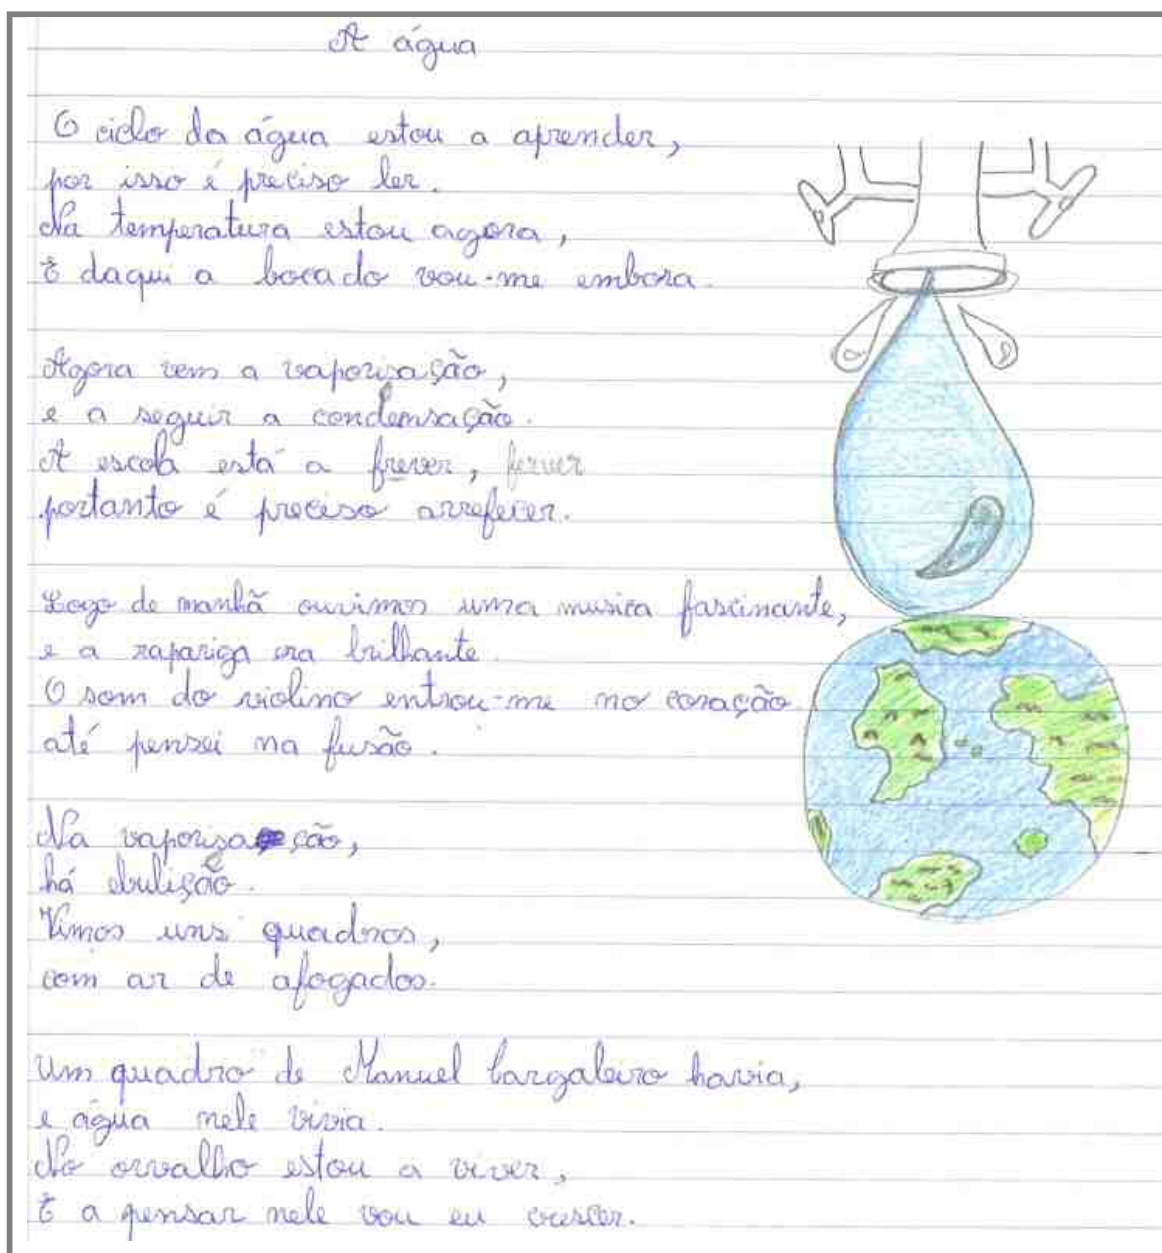 A água
O ciclo da água estou a aprender,
por isso é preciso ler.
Na temperatura estou agora,
E daqui a bocado vou-me embora.
Agora vem a vaporização,
e a seguir a condensação.
A escola está a frever, ferver
portanto é preciso arrefecer.
Logo de manhã ouvimos uma musica fascinante,
e a rapariga era brilhante.
O som do violino entrou-me no coração
até pensei na fusão.
Na vaporização,
há ebulição.
Vimos uns quadros,
com ar de afogados.
Um quadro de Manuel Cargaleiro havia,
e água nele vivia.
No orvalho estou a viver,
E a pensar nele vou eu crescer.